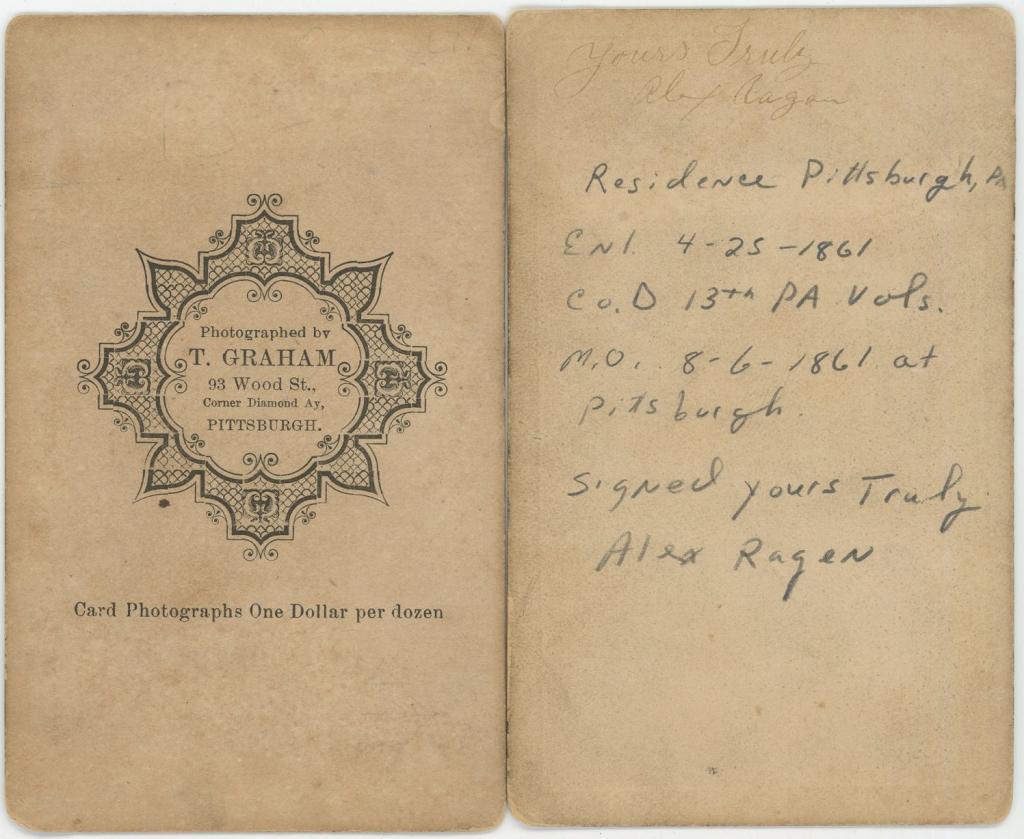 Photographed by
T. GRAHAM,
93 Wood St.,
Corner Diamond Ay,
PITTSBURGH.
Card Photographs One Dollar per dozen
Yours Truly
Alex Ragan
Residence Pittsburgh, PA
Enl. 4-25-1861
Co. D 13th PA Vols.
M.O. 8-6-1861 at
Pittsburgh.
Signed yours Truly
Alex Ragen